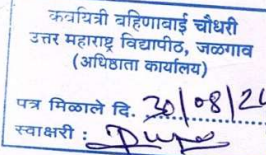 कवयित्री बहिणाबाई चौधरी
उत्तर महाराष्ट्र विद्यापीठ, जळगाव
(अधिष्ठाता कार्यालय)
पत्र मिळाले दि. 30/08/24
स्वाक्षरी :